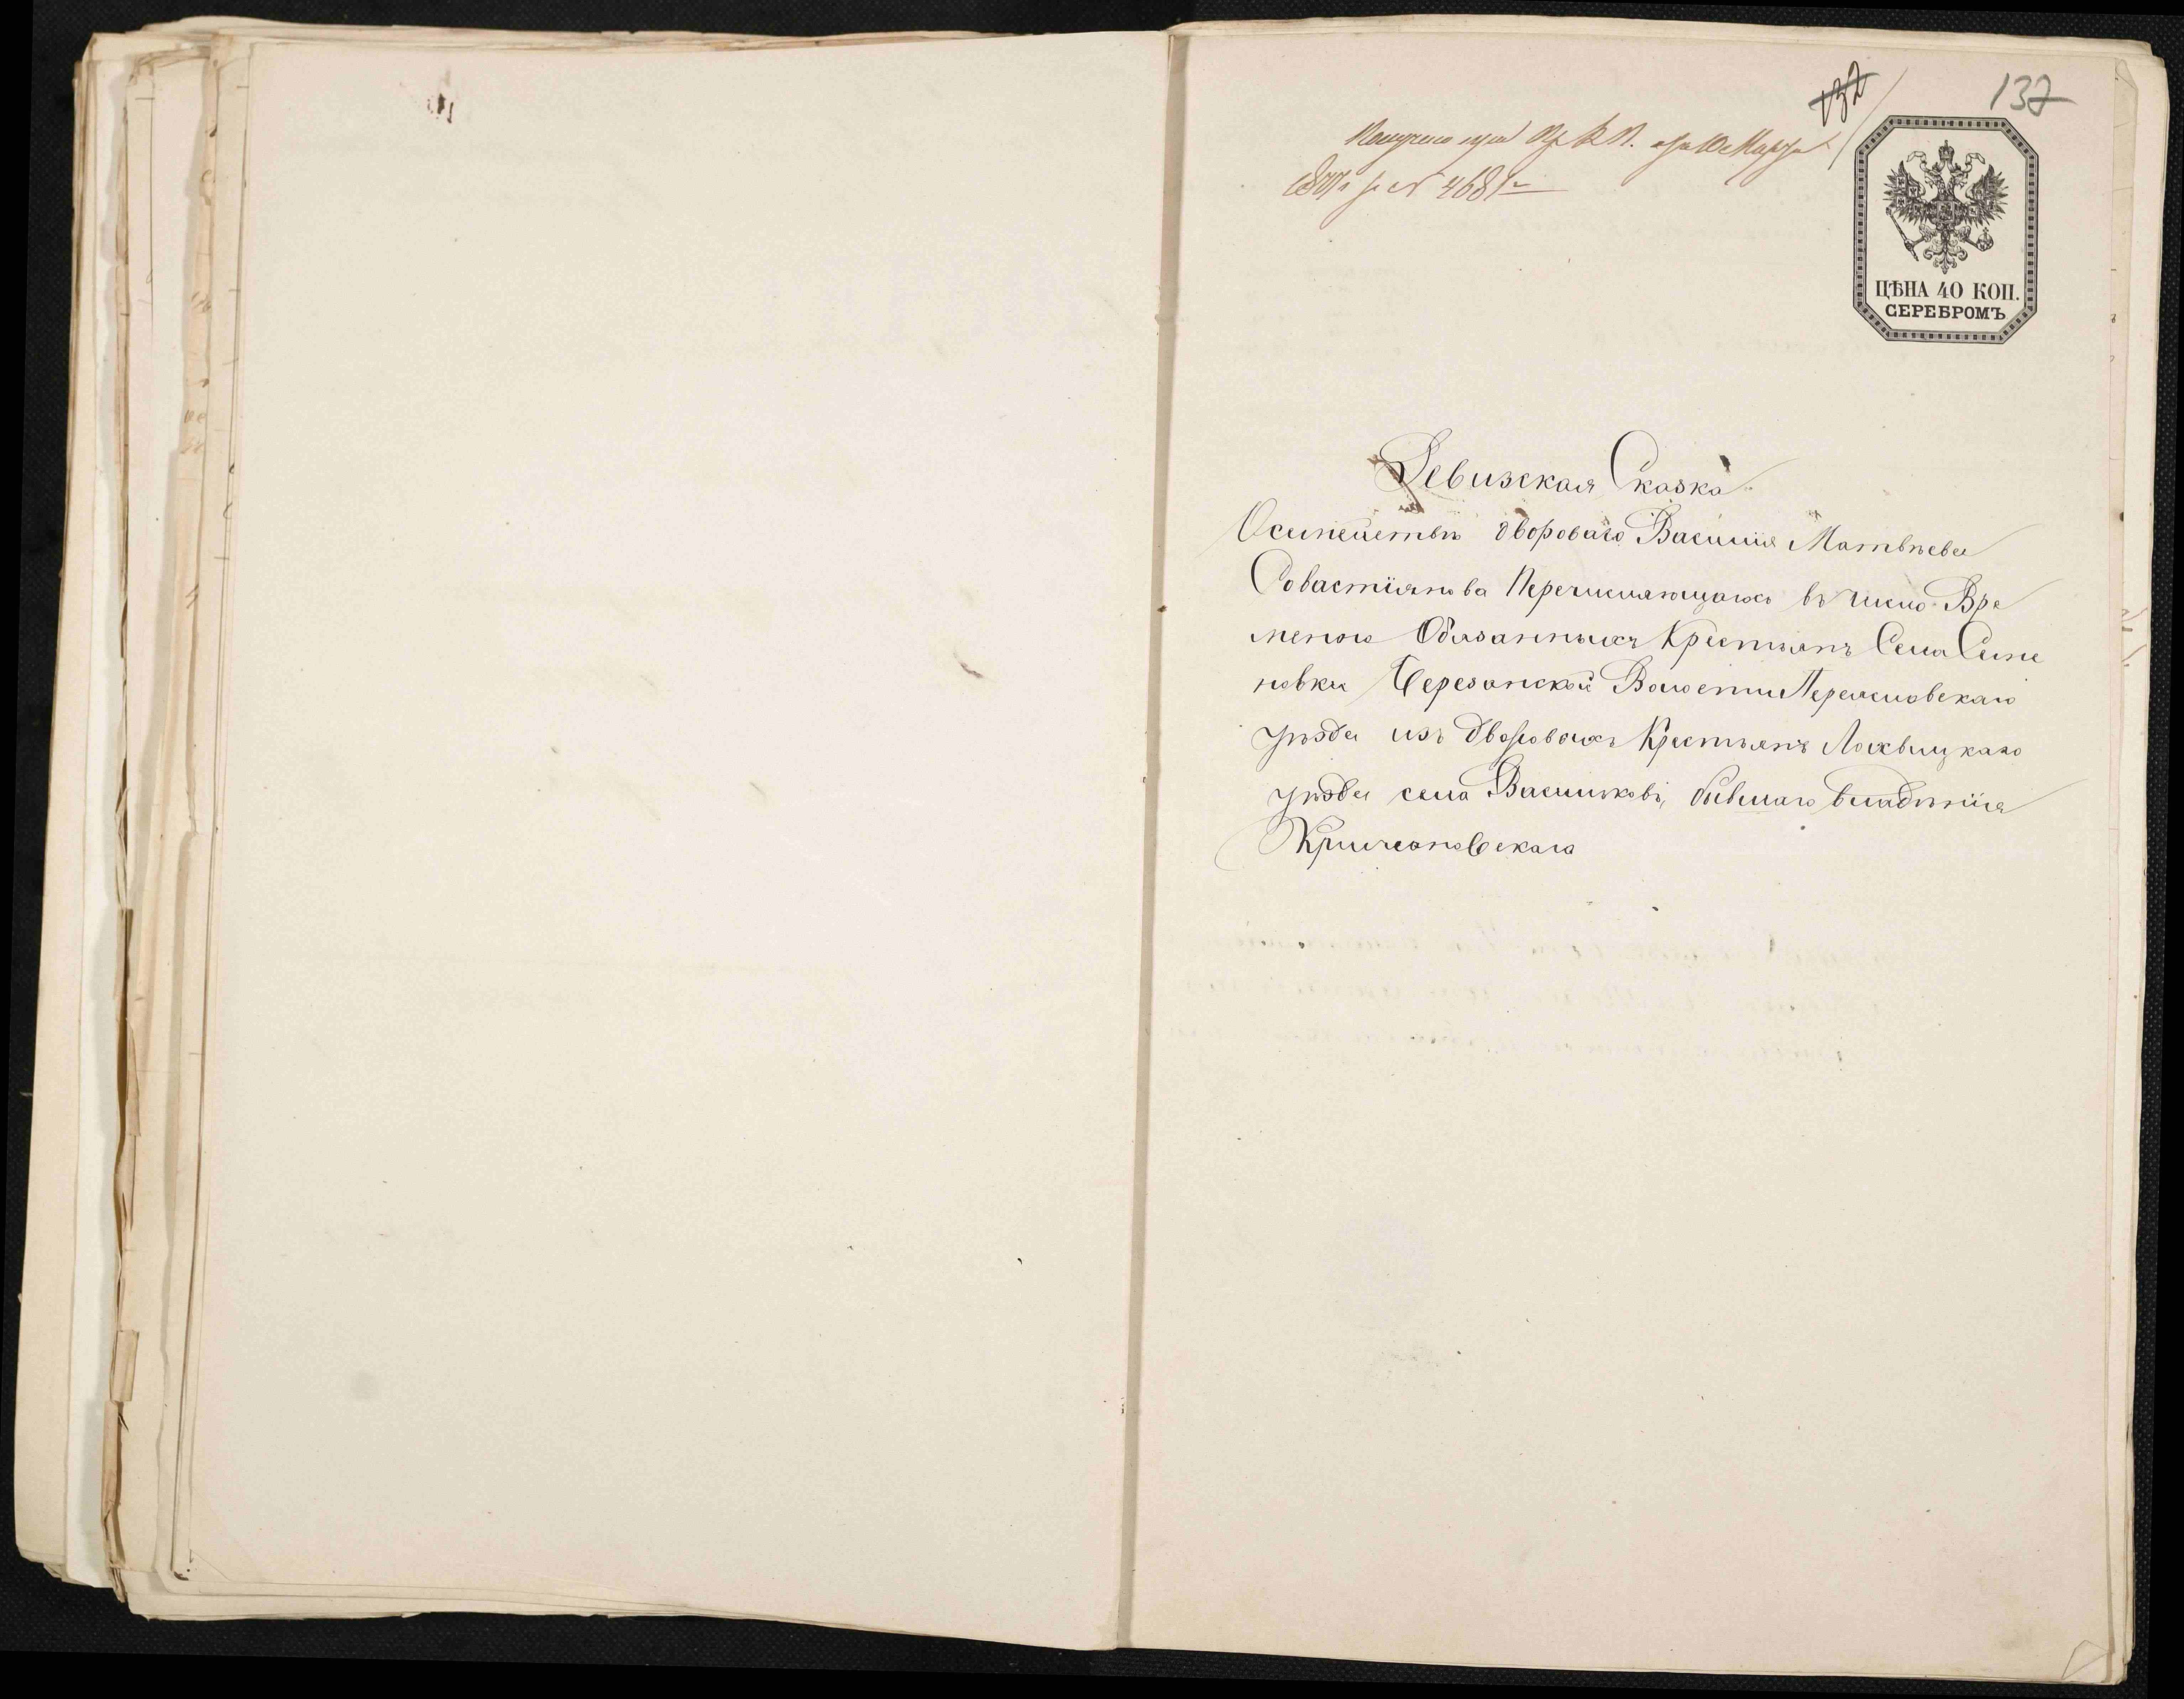 132
137
Получено при
10 Марта
№ 4681
ЦѢНА 40 КОП.
СЕРЕБРОМЪ
Ревизская Сказка
Осимействѣ двороваго Василия Матвѣева
Совастіянова Перечисляющихъ въ число Вре
менно Обязанныхъ Крестьянъ Села Семе
новки Березанской Волости Переяславскаго
уѣзда изъ дворовыхъ Крестьянъ Лохвицкаго
уѣзда села Васильковъ, бывшаго владѣнія